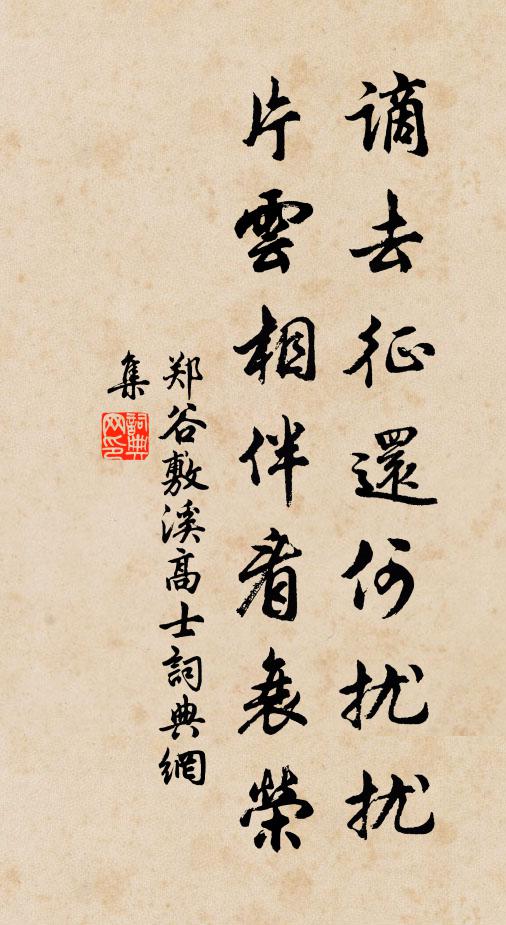 谪去征還何扰扰
片雲相伴看衰榮
郑谷敷溪高士詞典網
集
詞典网印